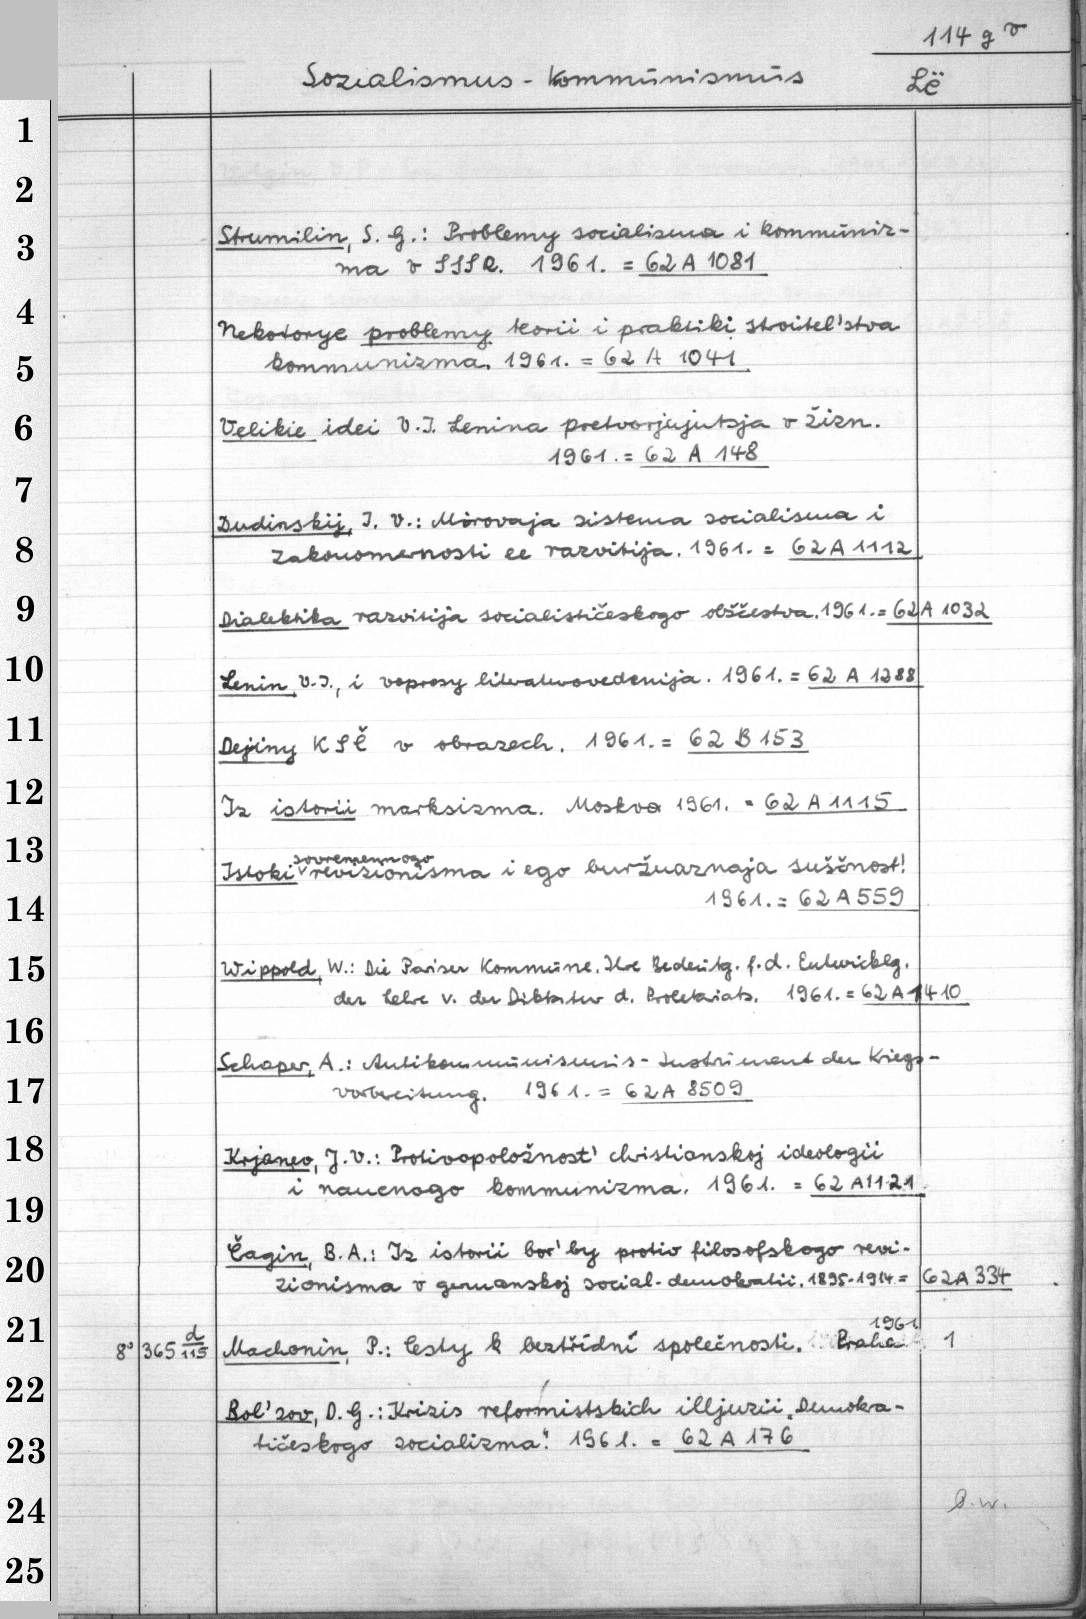 114 g v
Sozialismus - Kommūnismūs
Lë
1
2
3
Strumilin, S. G.: Problemy socialisma i kommūniz-
ma v SSSR. 1961. = 62 A 1081
4
Nekotorye problemy teorii i praktiki stroitel'stva
5
kommunizma. 1961. = 62 A 1041
6
Velikie idei V. I. Lenina pretvorjajutsja v žizn.
1961. = 62 A 148
7
Dudinskij, I. V.: Mirovaja sistema socialisma i
8
zakonomernosti ee razvitija. 1961. = 62 A 1112
9
Dialektika razvitija socialističeskogo obščestva. 1961. = 62 A 1032
10
Lenin, V. I., i voprosy literaturovedenija. 1961. = 62 A 1288
11
Dejiny KSČ v obrazech. 1961. = 62 B 153
12
Iz istorii marksizma. Moskva 1961. = 62 A 1115
13
sovremennogo
Istoki revizionisma i ego buržuaznaja suščnost'.
14
1961. = 62 A 559
15
Wippold, W.: Die Pariser Kommūne. Ihre Bedeūtg. f. d. Entwicklg.
der Lehre v. der Diktatur d. Proletariats. 1961. = 62 A 1410
16
Schaper, A.: Antikommūnismūs - Instrūment der Kriegs-
17
vorbereitung. 1961. = 62 A 8509
18
Krjanev, J. V.: Protivopoložnost' christianskoj ideologii
19
i naucnogo kommunizma. 1961. = 62 A 1121
20
Čagin, B. A.: Iz istorii bor'by protiv filosofskogo revi-
zionisma v germanskoj social-demokratii. 1895-1914 = 62 A 334
21
8° 365 d/115 Machonin, P.: Cesty k beztřídní společnosti. Praha 1961 1
22
Bol'sov, D. G.: Krizis reformistskich illjuzii „Demokra-
23
tičeskogo socializma". 1961. = 62 A 176
24
25